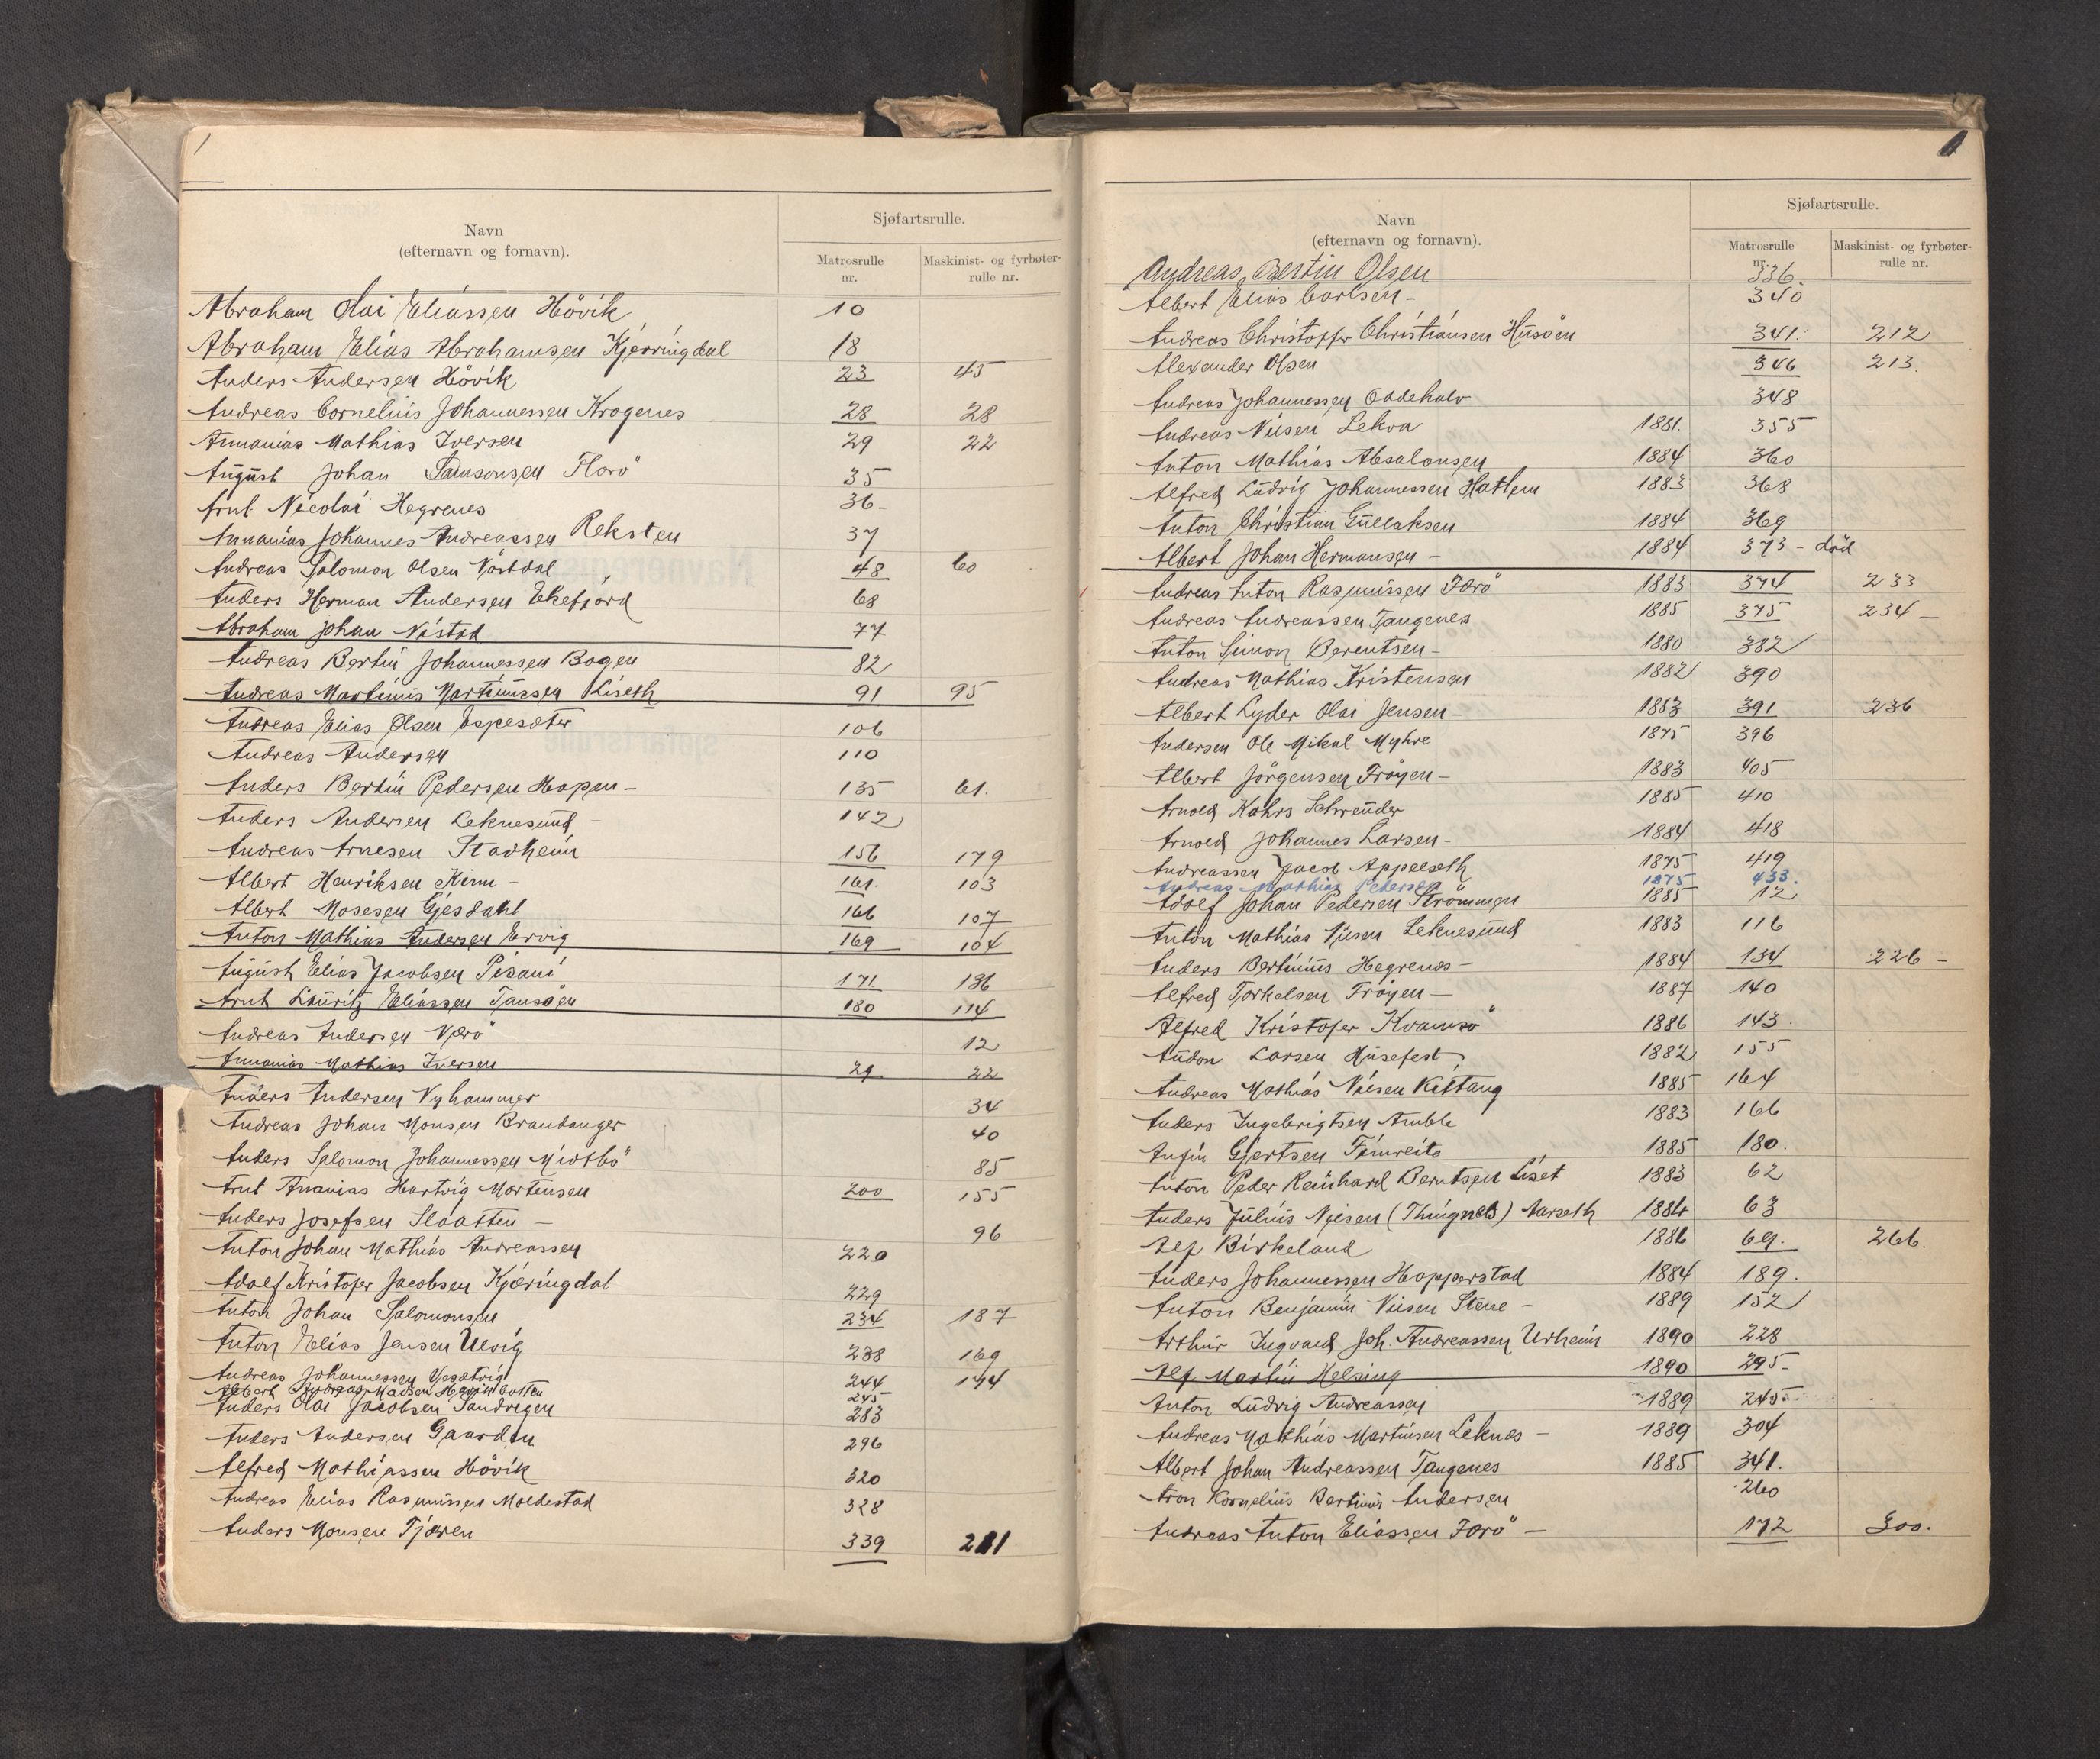 1
Navn
(efternavn og fornavn).
Sjøfartsrulle.
Matrosrulle nr.
Maskinist- og fyrbøter-rulle nr.
Abraham Olai Eliassen Hövik 10
Abraham Elias Abrahamsen Kjerringdal 18
Anders Andersen Hövik 23 45
Andreas Cornelius Johannessen Krogenes 28 28
Annanias Mathias Iversen 29 22
August Johan Samsonsen Florö 35
Arnt Nicolai Hegrenes 36-
Annanias Johannes Andreassen Reksten 37
Andreas Salomon Olsen Nöstdal 48 60
Anders Herman Andersen Ekefjord 68
Abraham Johan Nistad 77
Andreas Bertin Johannessen Bogen 82
Andreas Martinus Martinussen Liseth 91 95
Andreas Elias Olsen Espesæter 106
Andreas Andersen 110
Anders Bertin Pedersen Hopen - 135 61.
Anders Andersen Leknesund - 142
Andreas Arnesen Stadheim 156 179
Albert Henriksen Kinn - 161. 103
Albert Mosesen Gjesdahl 166 107
Anton Mathias Andersen Ervig 169 104
August Elias Jacobsen Pisani 171 136
Arnt Lauritz Eliassen Tansøen 180 114
Andreas Andersen Værö 12
Annanias Mathias Iversen 29 22
Anders Andersen Nyhammer 34
Andreas Johan Monsen Brandanger 40
Anders Salomon Johannessen Midtbö 85
Arnt Ananias Hartvig Mortensen 200 155
Anders Josefsen Slaatten - 96
Anton Johan Mathias Andreassen 220
Adolf Kristofer Jacobsen Kjæringdal 229
Anton Johan Salomonsen 234 187
Anton Elias Jensen Ulvig 238 169
Andreas Johannessen 244 174
Albert Andreas Madsen 245
Anders Olai Jacobsen Sandvigen 283
Anders Andersen Gaarden 296
Alfred Mathiassen Hövik 320
Andreas Elias Rasmussen Moldestad 328
Anders Monsen Tjæren 339 211
1
Navn
(efternavn og fornavn).
Sjøfartsrulle.
Matrosrulle nr.
Maskinist- og fyrbøter-rulle nr.
Andreas Bertin Olsen 336.
Albert Elias Carlsen - 340
Andreas Christoffer Christiansen Husøen 341. 212
Alexander Olsen 346 213.
Andreas Johannessen Oddekalv 348
Andreas Nilsen Lekva 1881. 355
Anton Mathias Absalonsen 1884 360
Alfred Ludvig Johannessen Hatlem 1883 368
Anton Christian Gullaksen 1884 369
Albert Johan Hermansen - 1884 373 - død
Andreas Anton Rasmussen Færö 1883 374 233
Andreas Andreassen Tangenes 1885 375 234 -
Anton Simon Berentsen - 1880 382
Andreas Mathias Kristensen 1882 390
Albert Lyder Olai Jensen - 1883 391 236
Andersen Ole Mikal Myhre 1875 396
Albert Jörgensen Fröyen - 1883 405
Arnold Kahrs Schreuder 1885 410
Arnold Johannes Larsen - 1884 418
Andreassen Jacob Appelseth 1875 419
Andreas Mathias Pedersen 1875 433.
Adolf Johan Pedersen Strömmen 1885 12
Anton Mathias Nilsen Leknesund 1883 116
Anders Bertinius Hegrenæs - 1884 134 226 -
Alfred Torkelsen Fröyen - 1887 140
Alfred Kristofer Kvamsö 1886 143
Audon Larsen Husefest - 1882 155
Andreas Mathias Nilsen Kittang 1885 164
Anders Ingebrigtsen Amble 1883 166
Anfin Gjertsen Fimreite 1885 180.
Anton Peder Reinhard Berntsen Liset 1883 62
Anders Julius Nilsen (Thingnes) Aarseth 1884 63
Alf Birkeland 1886 69. 266.
Anders Johannessen Hopperstad 1884 189.
Anton Benjamin Nilsen Stene - 1889 152
Arthur Ingvald Joh. Andreassen Urheim 1890 228
Alf Martin Helsing 1890 295-
Anton Ludvig Andreassen 1889 245
Andreas Mathias Martinsen Leknæs - 1889 304
Albert Johan Andreassen Tangenes 1885 341.
Aron Kornelius Bertinus Andersen 260
Andreas Anton Eliassen Færö - 172 300.